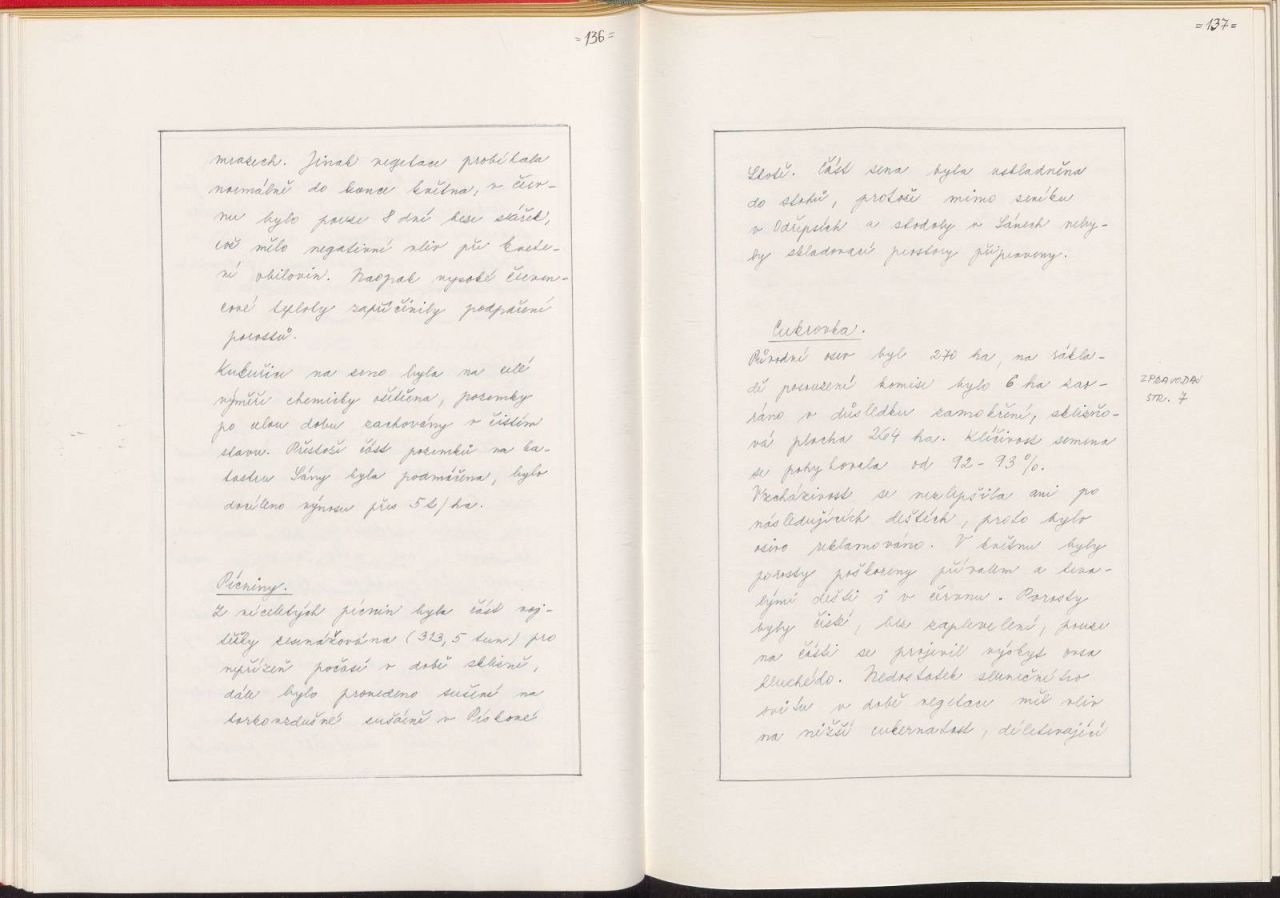 =136=
mrazech. Jinak vegetace probíhala
normálně do konce května, v červ-
nu bylo pouze 8 dní beze srážek,
což mělo negativní vliv při kvete-
ní obilovin. Naopak vysoké červen-
cové teploty zapříčinily podpáření
porostů.
Kukuřice na zeno byla na celé
výměře chemicky ošetřena, pozemky
po celou dobu zachovány v čistém
stavu. Přestože část pozemků na ka-
tastru Sány byla podmáčena, bylo
docíleno výnosu přes 5 t/ha.
Pícniny.
Z víceletých pícnin byla část voj-
těšky zesenážována (323,5 tun) pro
nepřízeň počasí v době sklizně,
dále bylo provedeno sušení na
horkovzdušné sušárně v Pískové
=137=
Lhotě. Část sena byla uskladněna
do stohů, protože mimo seníku
v Odřepsích a stodoly v Sánech neby-
ly skladovací prostory připraveny.
Cukrovka.
Původní osev byl 270 ha, na zákla-
dě posouzení komise bylo 6 ha zao-
ráno v důsledku zamokření, sklizňo-
vá plocha 264 ha. Klíčivost semena
se pohybovala od 92-93%.
Vzcházivost se nezlepšila ani po
následujících deštích, proto bylo
osivo reklamováno. V květnu byly
porosty poškozeny přívalem a trva-
lými dešti i v červnu. Porosty
byly čisté, bez zaplevelení, pouze
na části se projevil výskyt ovsa
hluchého. Nedostatek slunečního
svitu v době vegetace měl vliv
na nižší cukernatost, déletrvající
ZPRAVODAJ
STR. 7